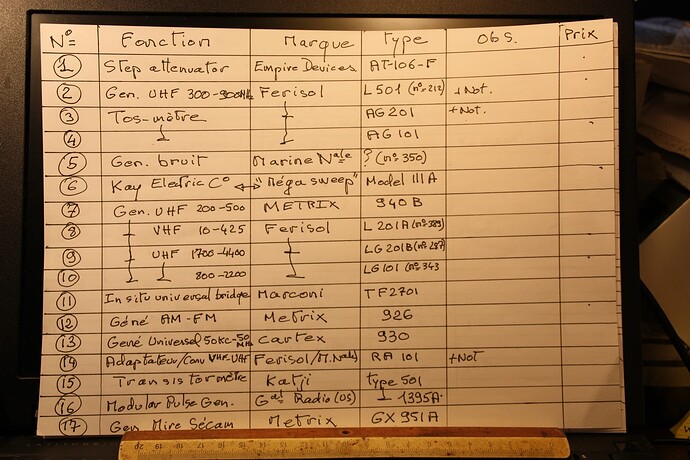 N° Fonction Marque Type Obs. Prix
1 Step attenuator Empire Devices AT-106-F
2 Gen. UHF 300-900MHz Ferisol L501 (n°=212) +Not.
3 Tos-mètre AG201 +Not.
4 AG101
5 Gen. bruit Marine Nale ? (n°350)
6 Kay Electric C° ↔ "Méga sweep" Model III A
7 Gen. UHF 200-500 METRIX 940B
8 VHF 10-425 Ferisol L201A (n°389)
9 UHF 1700-4400 LG201B (n°287)
10 800-2200 LG101 (n°343
11 In situ universal bridge Marconi TF2701
12 Géné AM-FM Metrix 926
13 Gené Universel 50Kc-50 MHz Cartex 930
14 Adaptateur/Conv VHF-UHF Ferisol/M.Nale RA 101 +Not
15 Transistormètre Katji type 501
16 Modular Pulse Gen. Gal Radio (US) 1395A.
17 Gen Mire Sécam Metrix GX 951A